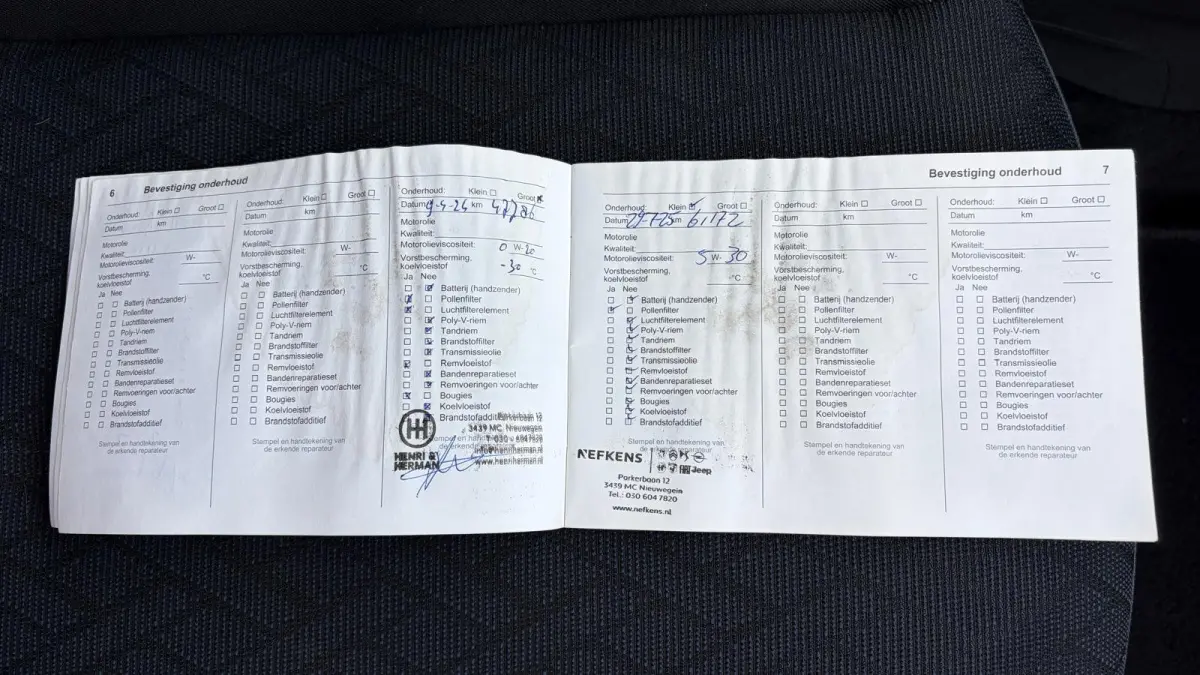 6 Bevestiging onderhoud
Onderhoud: Klein ☐ Groot ☐
Datum km
Motorolie
Kwaliteit:
Motorolieviscositeit: W-
Vorstbescherming,
koelvloeistof °C
Ja Nee
☐ ☐ Batterij (handzender)
☐ ☐ Pollenfilter
☐ ☐ Luchtfilterelement
☐ ☐ Poly-V-riem
☐ ☐ Tandriem
☐ ☐ Brandstoffilter
☐ ☐ Transmissieolie
☐ ☐ Remvloeistof
☐ ☐ Bandenreparatieset
☐ ☐ Remvoeringen voor/achter
☐ ☐ Bougies
☐ ☐ Koelvloeistof
☐ ☐ Brandstofadditief
Stempel en handtekening van
de erkende reparateur
Onderhoud: Klein ☐ Groot ☐
Datum km
Motorolie
Kwaliteit:
Motorolieviscositeit: W-
Vorstbescherming,
koelvloeistof °C
Ja Nee
☐ ☐ Batterij (handzender)
☐ ☐ Pollenfilter
☐ ☐ Luchtfilterelement
☐ ☐ Poly-V-riem
☐ ☐ Tandriem
☐ ☐ Brandstoffilter
☐ ☐ Transmissieolie
☐ ☐ Remvloeistof
☐ ☐ Bandenreparatieset
☐ ☐ Remvoeringen voor/achter
☐ ☐ Bougies
☐ ☐ Koelvloeistof
☐ ☐ Brandstofadditief
Stempel en handtekening van
de erkende reparateur
Onderhoud: Klein ☐ Groot ☒
Datum 9-4-24 km 47786
Motorolie
Kwaliteit:
Motorolieviscositeit: 0 W-20
Vorstbescherming,
koelvloeistof -30 °C
Ja Nee
☐ ☒ Batterij (handzender)
☒ ☐ Pollenfilter
☒ ☐ Luchtfilterelement
☐ ☒ Poly-V-riem
☐ ☒ Tandriem
☐ ☒ Brandstoffilter
☐ ☒ Transmissieolie
☒ ☐ Remvloeistof
☐ ☒ Bandenreparatieset
☐ ☒ Remvoeringen voor/achter
☒ ☐ Bougies
☐ ☒ Koelvloeistof
Brandstofadditief
HH
HENRI &
HERMAN
Parkerbaan 12
3439 MC Nieuwegein
T: 030 - 6047820
info@henriherman.nl
www.henriherman.nl
Bevestiging onderhoud 7
Onderhoud: Klein ☑ Groot ☐
Datum 29-7-25 km 61172
Motorolie
Kwaliteit:
Motorolieviscositeit: 5 W- 30
Vorstbescherming,
koelvloeistof °C
Ja Nee
☐ ☑ Batterij (handzender)
☑ ☐ Pollenfilter
☐ ☑ Luchtfilterelement
☐ ☑ Poly-V-riem
☐ ☑ Tandriem
☐ ☑ Brandstoffilter
☐ ☑ Transmissieolie
☐ ☑ Remvloeistof
☐ ☑ Bandenreparatieset
☐ ☑ Remvoeringen voor/achter
☐ ☑ Bougies
☐ ☑ Koelvloeistof
☐ ☑ Brandstofadditief
Stempel en handtekening van
de erkende reparateur
NEFKENS
Jeep
Parkerbaan 12
3439 MC Nieuwegein
Tel.: 030 604 7820
www.nefkens.nl
Onderhoud: Klein ☐ Groot ☐
Datum km
Motorolie
Kwaliteit:
Motorolieviscositeit: W-
Vorstbescherming,
koelvloeistof °C
Ja Nee
☐ ☐ Batterij (handzender)
☐ ☐ Pollenfilter
☐ ☐ Luchtfilterelement
☐ ☐ Poly-V-riem
☐ ☐ Tandriem
☐ ☐ Brandstoffilter
☐ ☐ Transmissieolie
☐ ☐ Remvloeistof
☐ ☐ Bandenreparatieset
☐ ☐ Remvoeringen voor/achter
☐ ☐ Bougies
☐ ☐ Koelvloeistof
☐ ☐ Brandstofadditief
Stempel en handtekening van
de erkende reparateur
Onderhoud: Klein ☐ Groot ☐
Datum km
Motorolie
Kwaliteit:
Motorolieviscositeit: W-
Vorstbescherming,
koelvloeistof °C
Ja Nee
☐ ☐ Batterij (handzender)
☐ ☐ Pollenfilter
☐ ☐ Luchtfilterelement
☐ ☐ Poly-V-riem
☐ ☐ Tandriem
☐ ☐ Brandstoffilter
☐ ☐ Transmissieolie
☐ ☐ Remvloeistof
☐ ☐ Bandenreparatieset
☐ ☐ Remvoeringen voor/achter
☐ ☐ Bougies
☐ ☐ Koelvloeistof
☐ ☐ Brandstofadditief
Stempel en handtekening van
de erkende reparateur